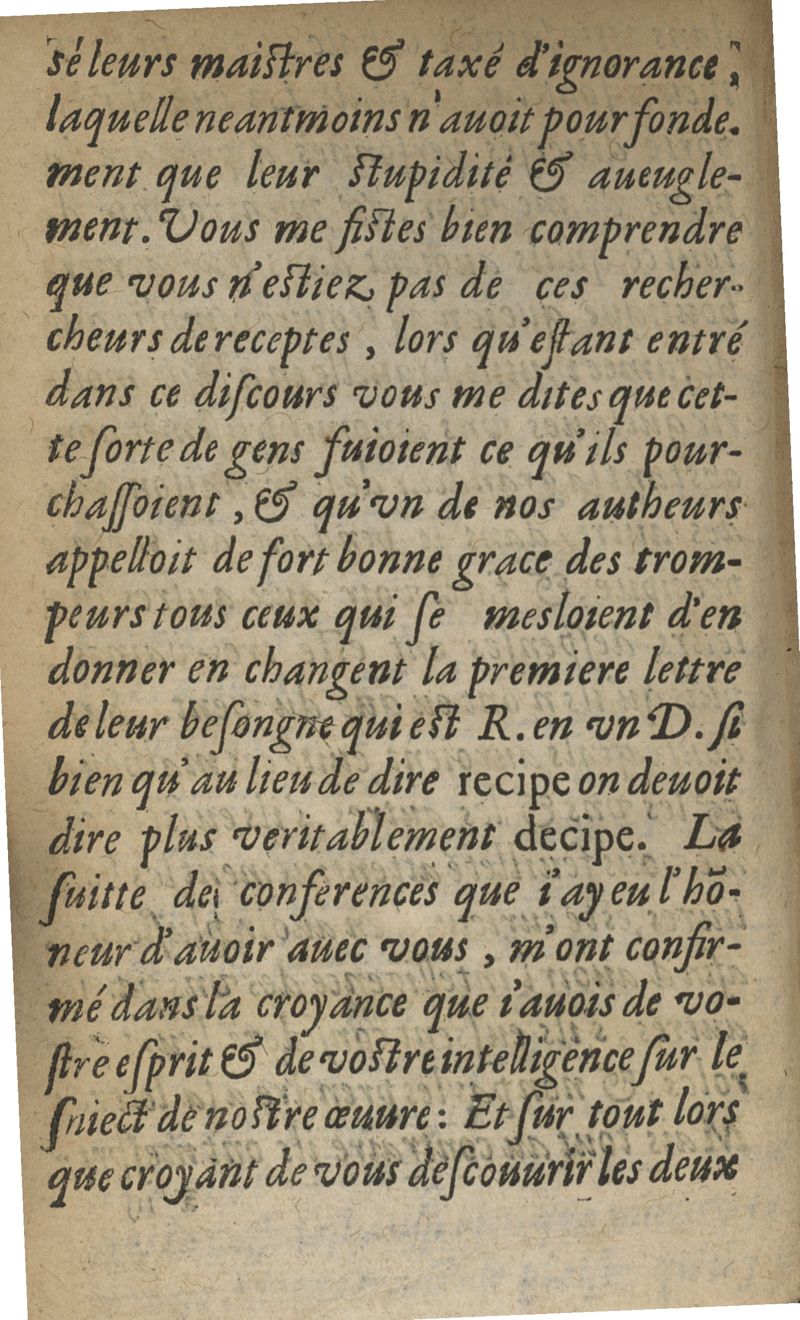 sé leurs maistres & taxé d'ignorance,
laquelle neantmoins n'auoit pour fonde.
ment que leur stupidité & aueugle-
ment. Vous me fistes bien comprendre
que vous n'estiez pas de ces recher-
cheurs de receptes, lors qu'eſtant entré
dans ce diſcours vous me dites que cet-
te ſorte de gens fuioient ce qu'ils pour-
chaſſoient, & qu'vn de nos autheurs
appelloit de fort bonne grace des trom-
peurs tous ceux qui ſe mesloient d'en
donner en changent la premiere lettre
de leur beſongne qui est R. en vn D. ſi
bien qu'au lieu de dire recipe on deuoit
dire plus veritablement decipe. La
ſuitte de conferences que i'ay eu l'hõ-
neur d'auoir auec vous, m'ont confir-
mé dans la croyance que i'auois de vo-
ſtre eſprit & de vostre intelligence ſur le
ſniect de nostre œuure: Et ſur tout lors
que croyant de vous deſcouurir les deux